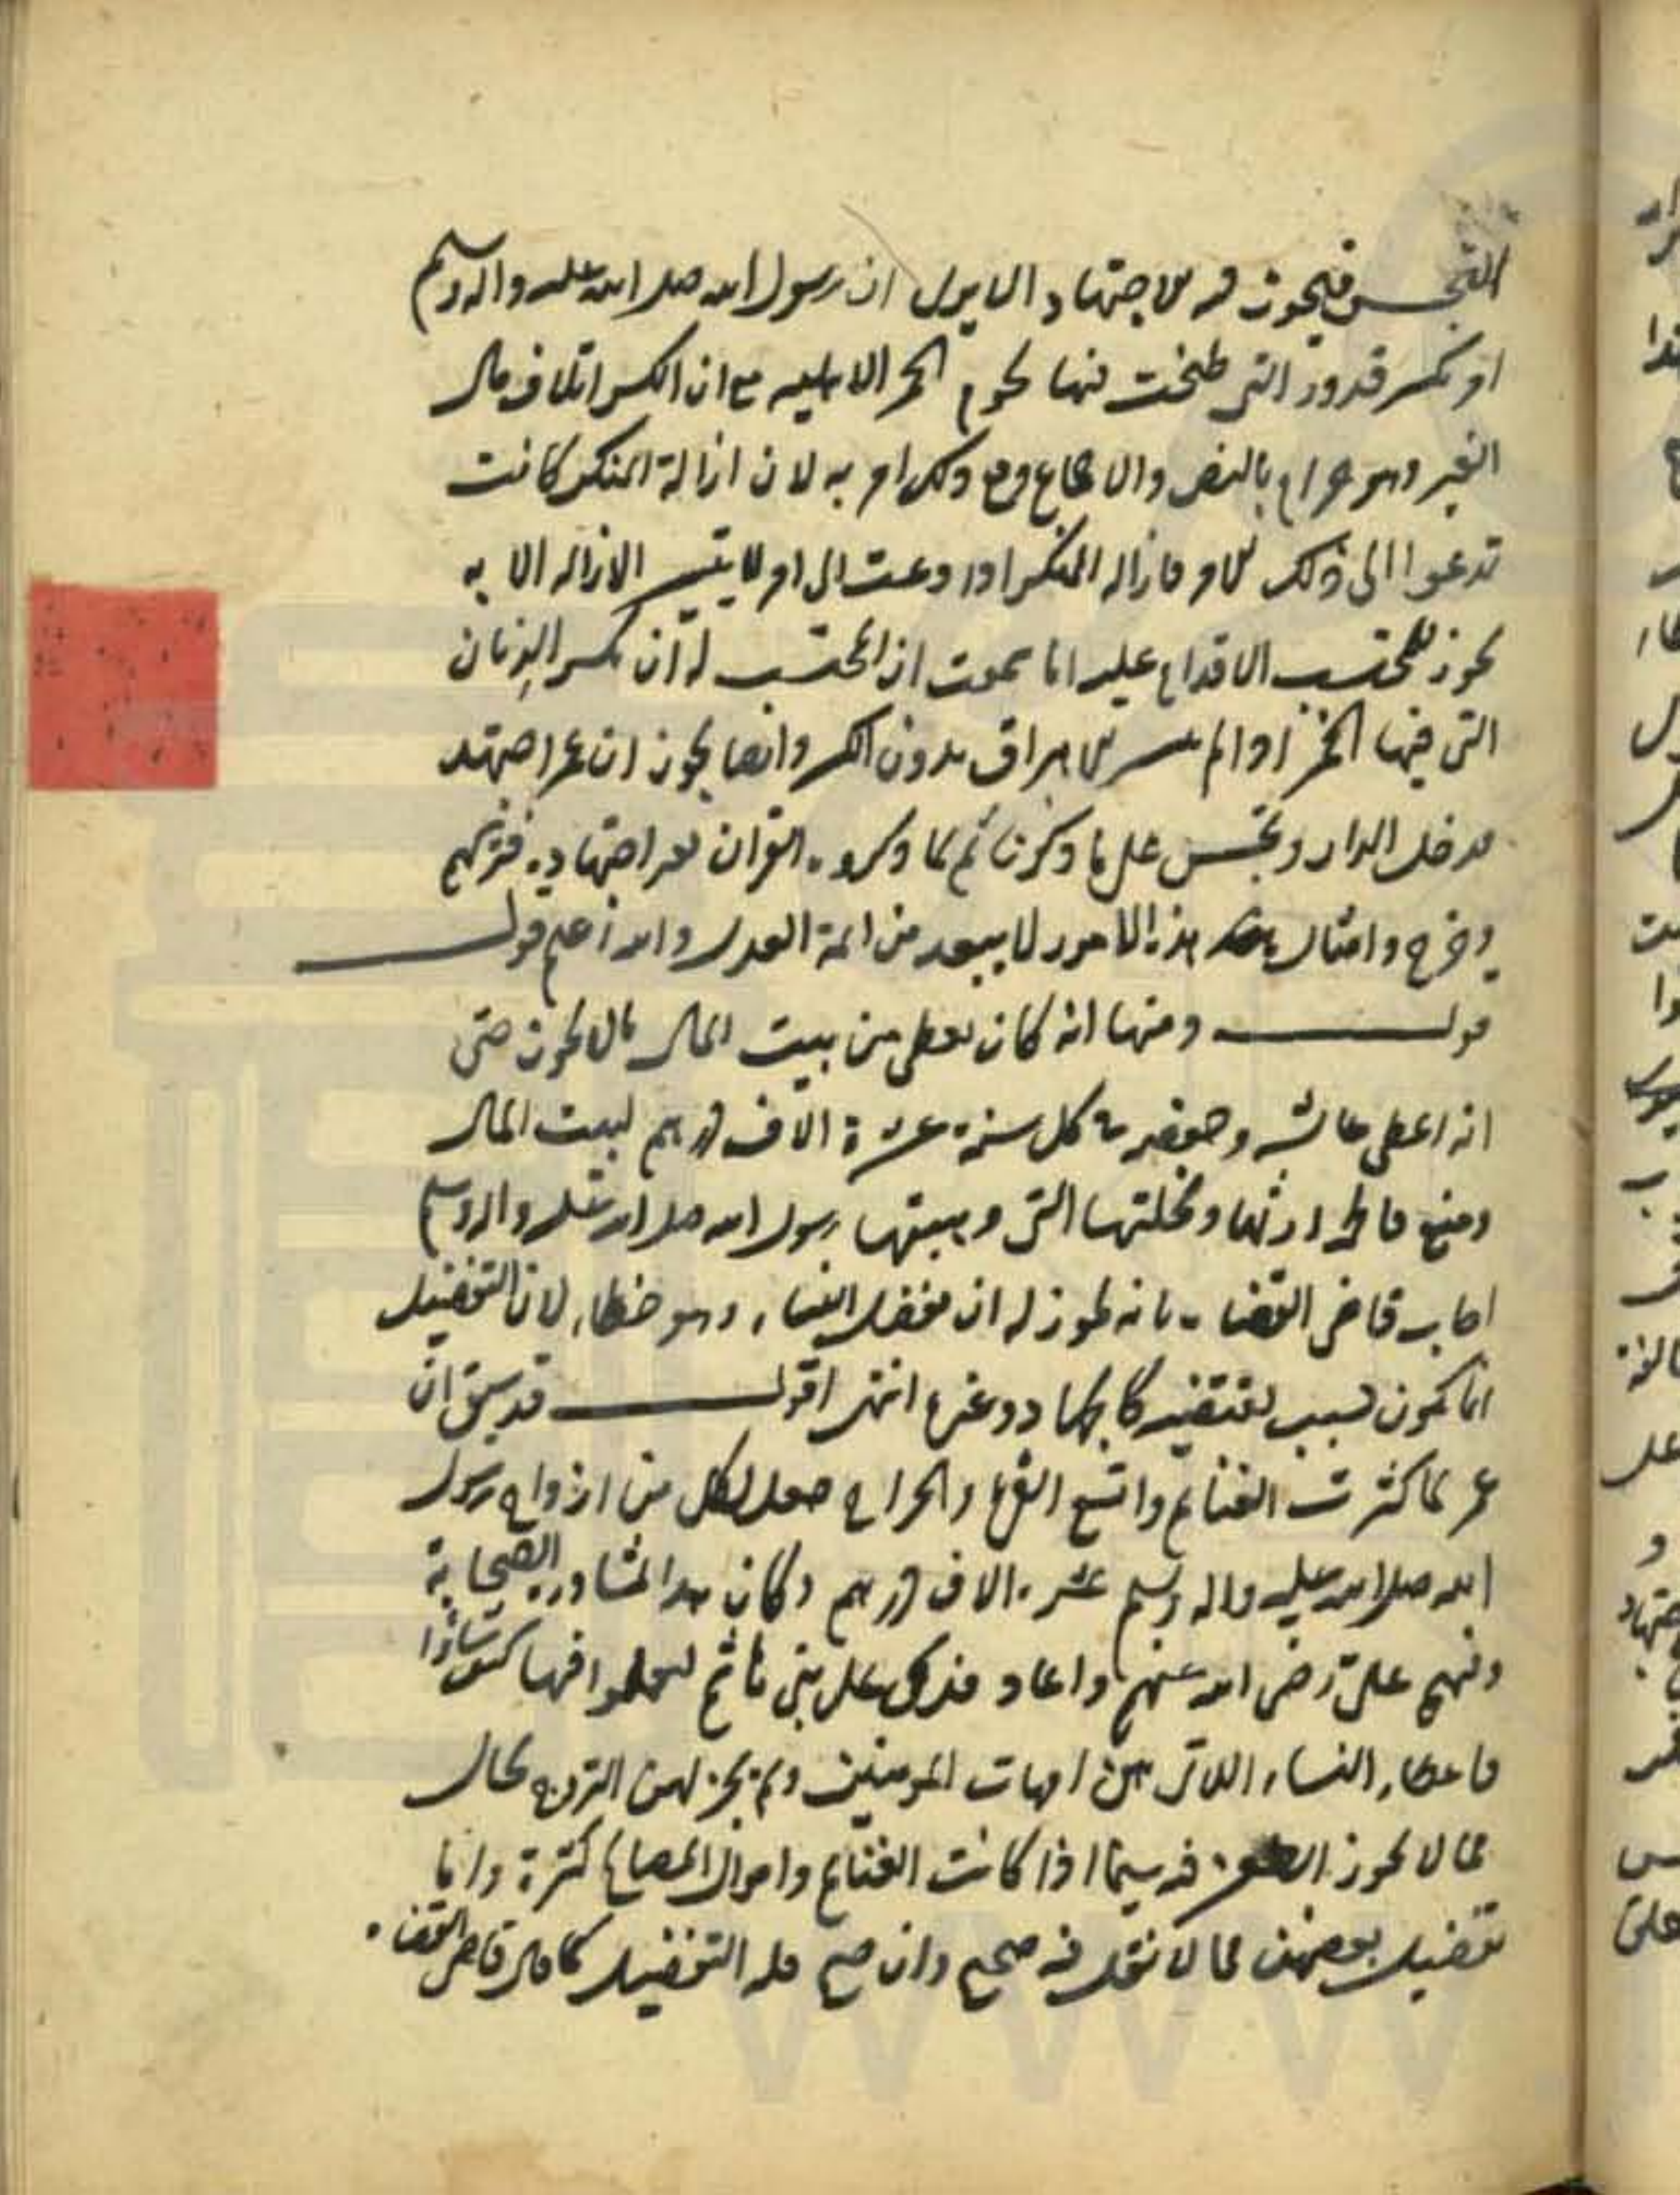 التجسس فيجوز فيه الاجتهاد الا يرى ان رسول الله صلى الله عليه واله وسلم
امر بكسر قدور التى طبخت فيها لحوم الحمر الاهلية مع ان الكسر اتلاف مال
الغير وهو حرام بالنص والاجماع ومع ذلك امر به لان ازالة المنكر كانت
تدعوا الى ذلك الامر فازاله المنكر اذا دعت الى امر لا يتيسر الازاله الا به
يجوز للمحتسب الاقدام عليه اما سمعت ان المحتسب له ان يكسر الدنان
التى فيها الخمر اذا لم يتيسر الاهراق بدون الكسر وايضا يجوز ان عمر اجتهد
فدخل الدار وتجسس على ما ذكرنا ثم لما ذكروه القران تغير اجتهاده فتركهم
وخرج وامثال هذه الامور لا يبعد من ائمة العدل والله اعلم قولـــه
قولـــه ومنها انه كان يعطى من بيت المال ما لا يجوز حتى
انه اعطى عائشه وحفصه كل سنة عشرة الاف درهم لبيت المال
ومنع فاطمه ارثها ونحلتها التى وهبتها رسول الله صلى الله عليه واله وسلم
اجاب قاضى القضاة بانه يجوز له ان يفضل النساء وهو خطاء لان التفضيل
انما يكون لسبب يقتضيه كالجهاد وغيره انتهى اقولـــ قد سبق ان
عمر لما كثرت الغنائم واتسع الفئ والخراج جعل لكل من ازواج رسول
الله صلى الله عليه واله وسلم عشرة الاف درهم وكان هذا لمشاورة الصحابة
وفيهم على رضى الله عنهم واعاد فدك على بنى هاشم ليعملوا فيها كيف شاؤا
فاعطاء النساء اللاتى هن امهات المؤمنين ولم يجز لهن التزوج بحال
مما لا يجوز فيه سيما اذا كانت الغنايم واموال المصالح كثيرة واما
تفضيل بعضهن مما لا نقل فيه صحيح وان صح فله التفضيل كما قال قاضى القضاة